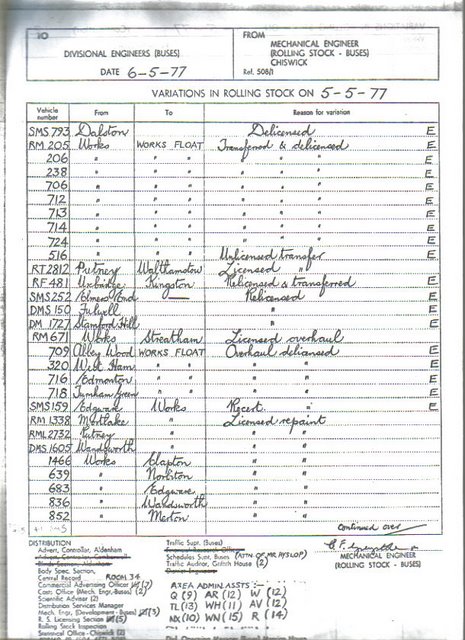 TO
DIVISIONAL ENGINEERS (BUSES)
DATE 6-5-77
FROM
MECHANICAL ENGINEER
(ROLLING STOCK - BUSES)
CHISWICK
Ref. 508/1
VARIATIONS IN ROLLING STOCK ON 5-5-77
Vehicle number From To Reason for variation
SMS 793 Dalston Delicensed E
RM 205 Works WORKS FLOAT Transferred & delicensed E
206 " " " " " E
238 " " " " " E
706 " " " " " E
712 " " " " " E
713 " " " " " E
714 " " " " " E
724 " " " " " E
516 " " " Unlicensed transfer E
RT2812 Putney Walthamstow Licensed "
RF 481 Uxbridge Kingston Relicensed & transferred E
SMS252 Elmers End — Relicensed E
DMS 150 Fulwell "
DM 1727 Stamford Hill "
RM 671 Works Streatham Licensed overhaul
709 Abbey Wood WORKS FLOAT Overhaul delicensed E
320 West Ham " " " " E
716 Edmonton " " " " E
718 Turnham Green " " " " E
SMS159 Edgware Works Recert. " E
RM 1338 Mortlake " Licensed repaint
RML 2732 Putney " " "
DMS 1605 Wandsworth " " "
1466 Works Clapton " "
639 " Norbiton " "
683 " Edgware " "
836 " Wandsworth " "
852 " Merton " "
Continued over
DISTRIBUTION
Advert. Controller, Aldenham
Body Spec. Section,
Central Record ROOM 34
Commercial Advertising Officer
Costs Office (Mech. Engr. Buses) (2)
Scientific Adviser (2)
Distribution Services Manager
Mech. Engr. (Development - Buses) (3)
R. S. Licensing Section (5)
Rolling Stock Inspection
Statistical Office - Chiswick (2)
Traffic Supt. (Buses)
Schedules Supt. Buses (ATTN OF MR HYSLOP)
Traffic Auditor, Griffith House (2)
AREA ADMIN. ASSTS :-
Q (9) AR (12) W (12)
TL (13) WH (11) AV (12)
NX (10) WN (15) R (14)
MECHANICAL ENGINEER
(ROLLING STOCK - BUSES)